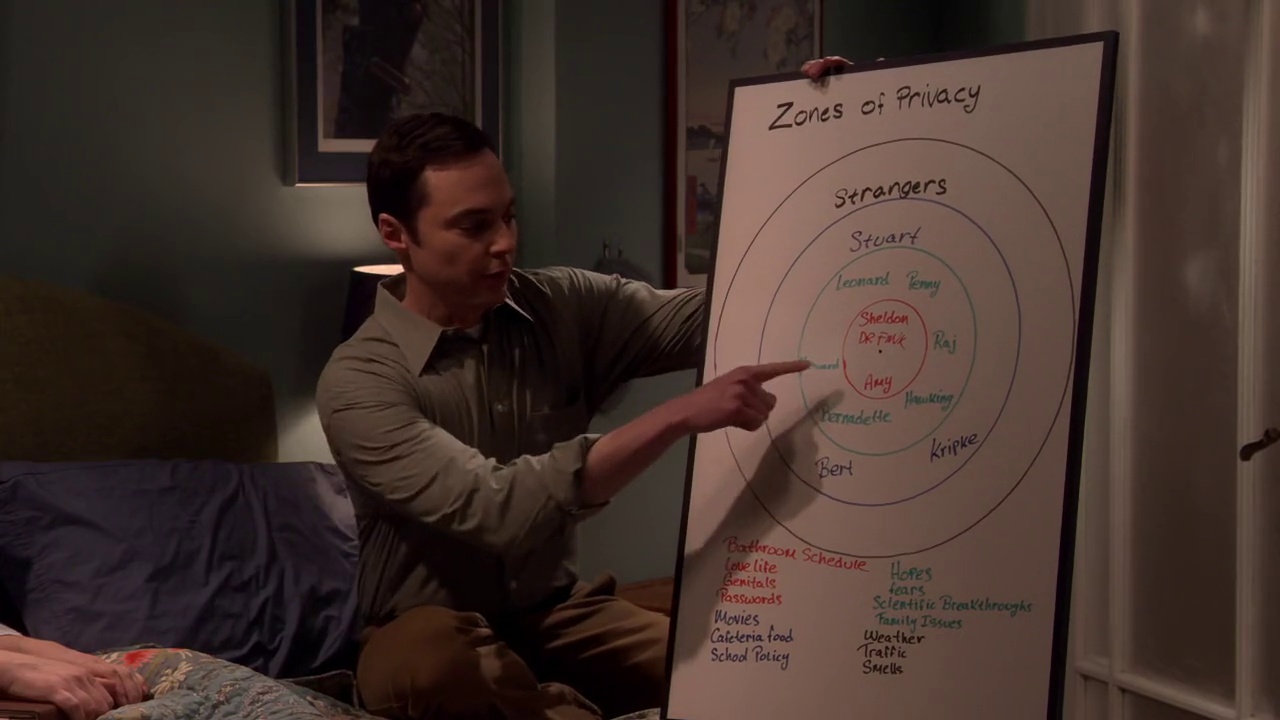 Zones of Privacy
Strangers
Stuart
Leonard Penny
Sheldon
Raj
Amy
Hawking
Bernadette
Kripke
Bert
Bathroom Schedule
Love life
Genitals
Passwords
Movies
Cafeteria food
School Policy
Hopes
fears
Scientific Breakthroughs
Family Issues
Weather
Traffic
Smells